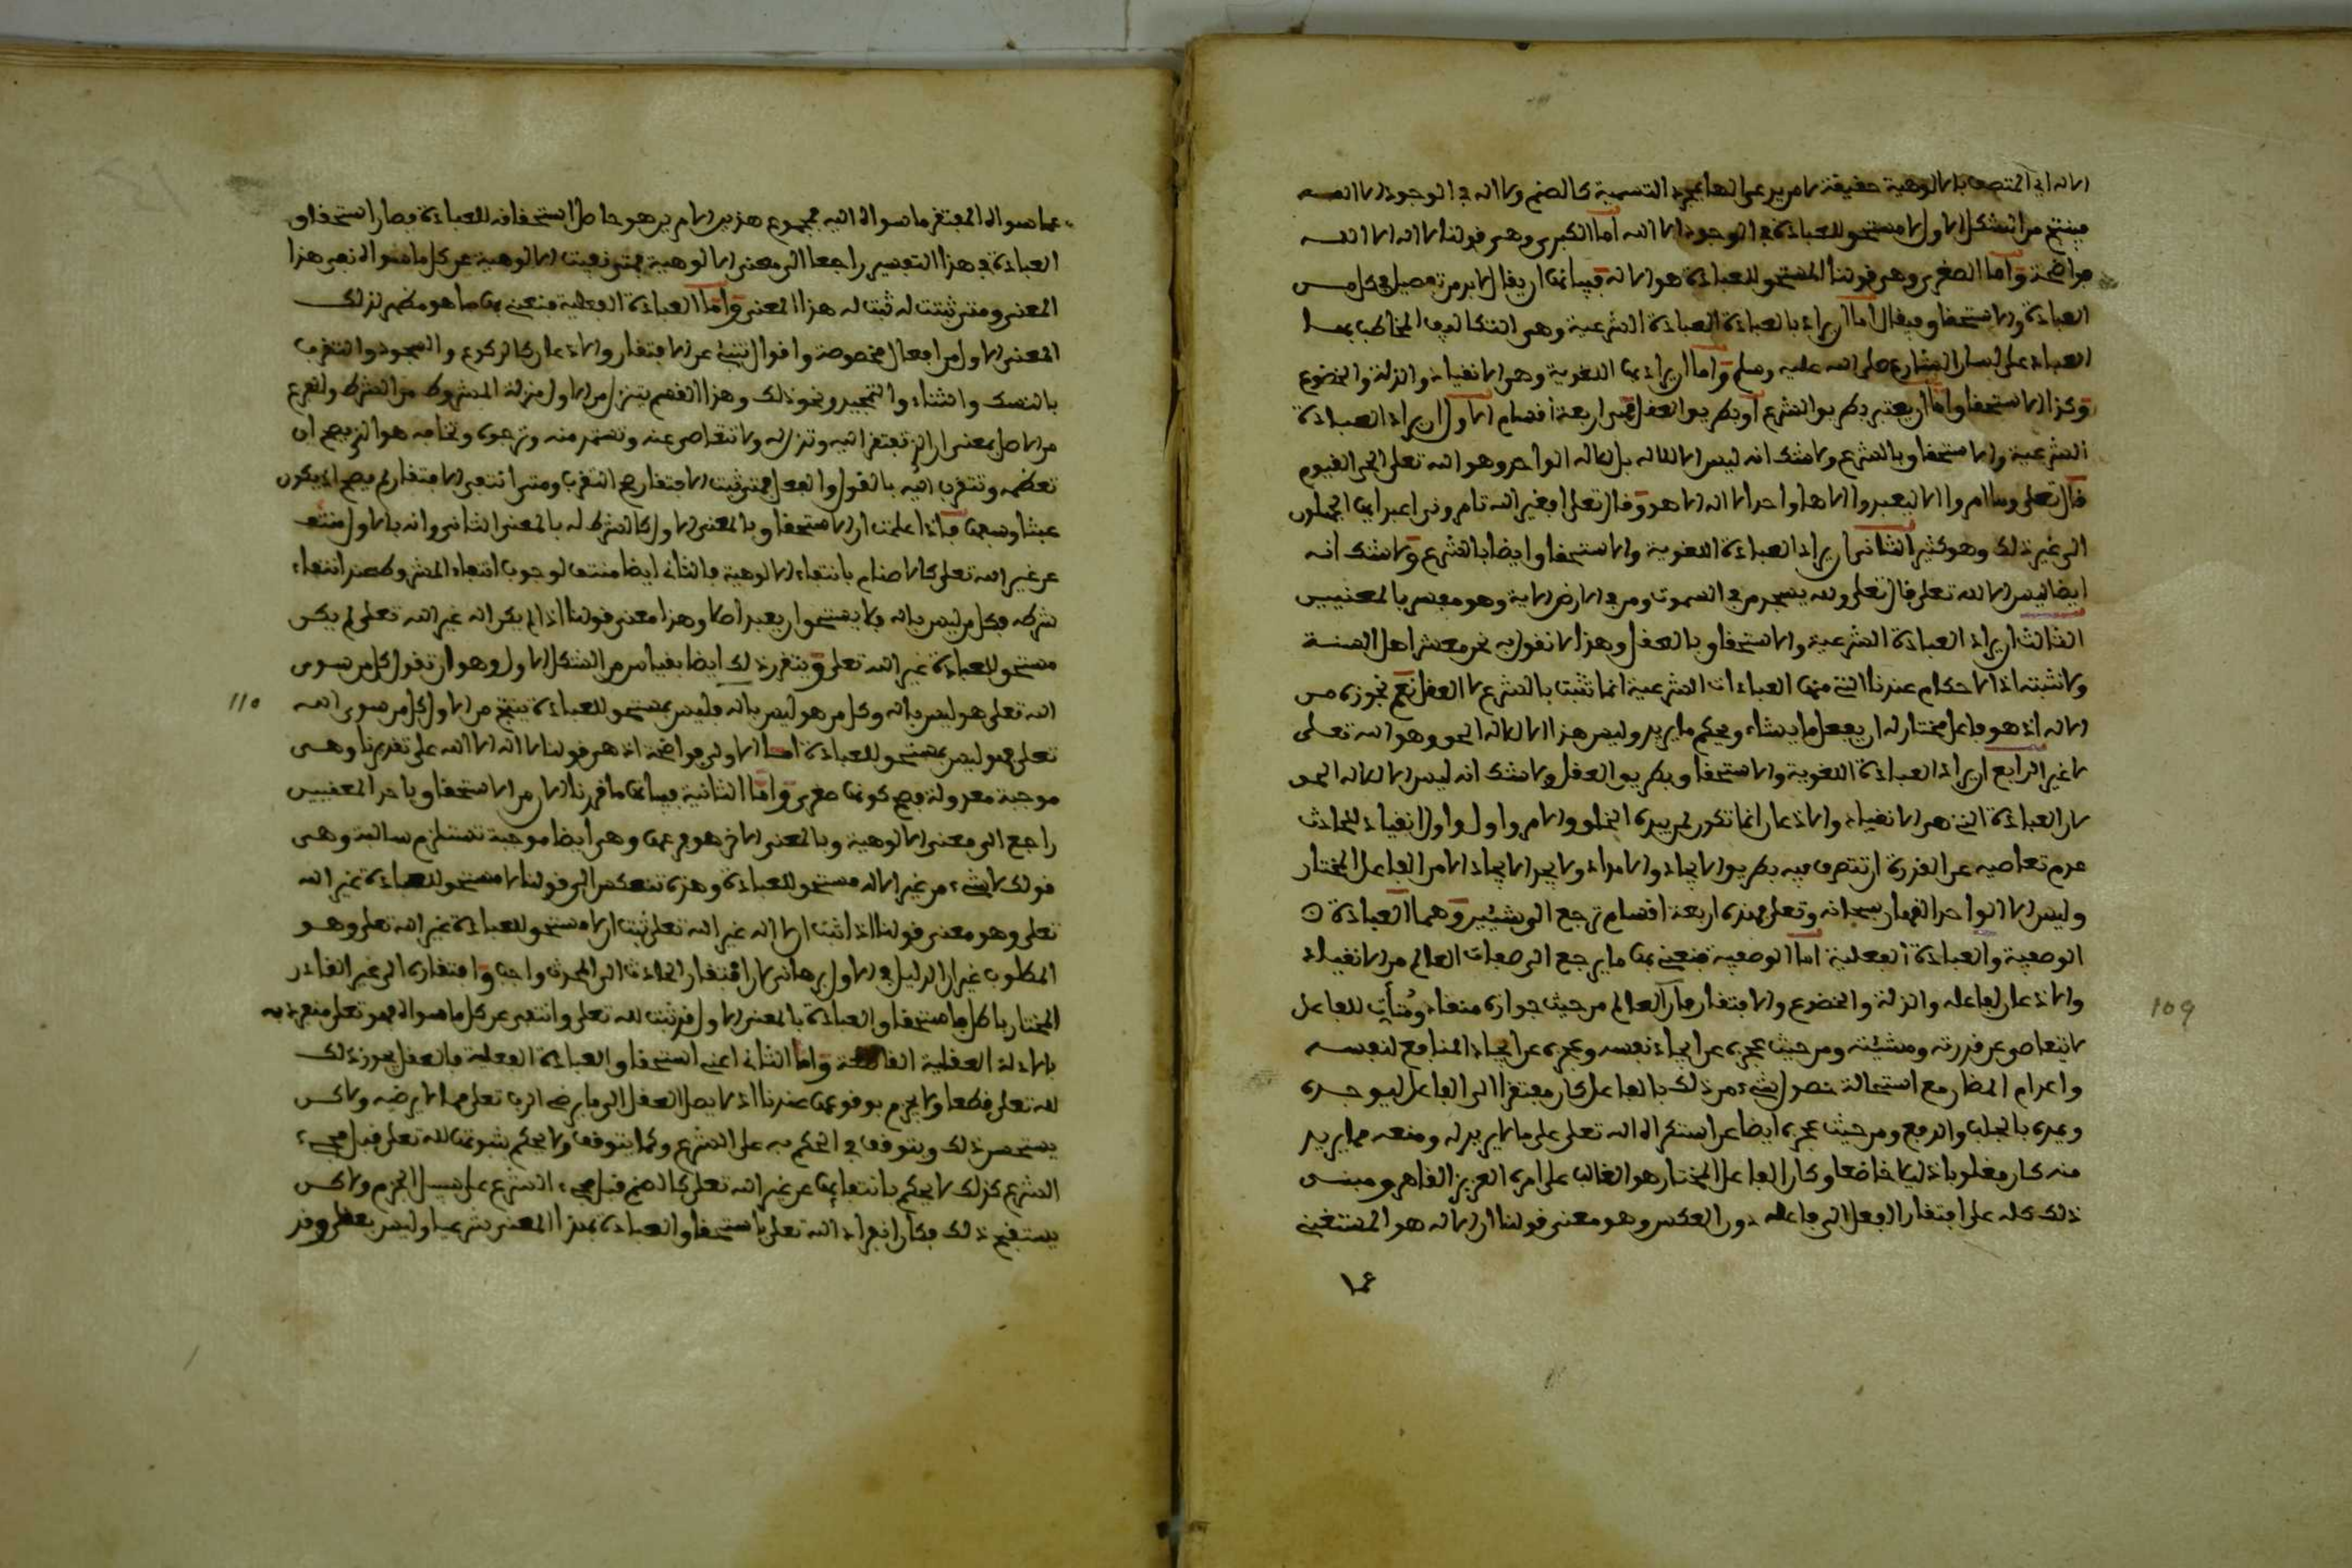 الاله اي المتصف بالالوهية حقيقة لا من يدعى الها بمجرد التسمية كالصنم ولا اله في الوجود الا الله
فينتج من الشكل الاول لا مستحق للعبادة في الوجود الا الله اما الكبرى وهي قولنا لا اله الا الله
فواضحة واما الصغرى وهي قولنا المستحق للعبادة هو الاله فبيانها ان يقال لا بد من تفصيل في كل من
العبادة والاستحقاق فيقال اما ان يراد بالعبادة العبادة الشرعية وهي التكاليف المخاطب بها
العباد على لسان الشارع صلى الله عليه وسلم واما ان يراد بها اللغوية وهو الانقياد والذلة والخضوع
وكذا الاستحقاق اما ان يعتبر بطريق الشرع او بطريق العقل فهي اربعة اقسام الاول ان يراد العبادة
الشرعية والاستحقاق بالشرع ولا شك انه ليس الا للاله بل للاله الواحد وهو الله تعلى الحي القيوم
قال تعلى وما امروا الا ليعبدوا الاها واحدا لا اله الا هو وقال تعلى افغير الله تامروني اعبد ايها الجهلون
الى غير ذلك وهو كثير الثاني ان يراد العبادة اللغوية والاستحقاق ايضا بالشرع ولا شك انه
ايضا ليس الا لله تعلى قال تعلى ولله يسجد من في السموت ومن في الارض الاية وهو مفسر بالمعنيين
الثالث ان يراد العبادة الشرعية والاستحقاق بالعقل وهذا لا نقول به نحن معشر اهل السنة
ولا نثبته اذ الاحكام عندنا التي منها العبادات الشرعية انما تثبت بالشرع لا العقل نعم نجوزه من
الاله اذ هو فاعل مختار له ان يفعل ما يشاء ويحكم ما يريد وليس هذا الا للاله الحق وهو الله تعلى
لا غير الرابع ان يراد العبادة اللغوية والاستحقاق بطريق العقل ولا شك انه ليس الا للاله الحق
لان العبادة التي هي الانقياد والاذعان انما تكون لمن بيده الخلق والامر واول اول انقياد للحادث
عدم تعاصيه عن القدرة ان تتصرف فيه بطريق الايجاد والامداد ولا يجد الايجاد الا من الفاعل المختار
وليس الا الواحد القهار سبحانه وتعلى فهذه اربعة اقسام ترجع الى شيئين وهما العبادة
الوصفية والعبادة الفعلية اما الوصفية فنعني بها ما يرجع الى صفات العالم من الانقياد
والاذعان لفاعله والذلة والخضوع والافتقار فان العالم من حيث جوازه منقاد ومتأت للفاعل
لا يتعاصى عن قدرته ومشيئته ومن حيث عجزه عن ايجاد نفسه وعجزه عن ايجاد المنافع لنفسه
واعدام المضار مع استحالة حصول شيء من ذلك بلا فاعل كان مفتقرا الى الفاعل ليوجده
ويمده بالجلب والدفع ومن حيث عجزه ايضا عن استكراه الله تعلى على ما لا يريد له ومنعه مما يريد
منه كان مغلوبا ذليلا خاضعا وكان الفاعل المختار هو الغالب على امره العزيز القاهر ومبنى
ذلك كله على افتقار الفعل الى فاعله دون العكس وهو معنى قولنا ان الاله هو المستغني
عما
109
عما سواه المفتقر ما سواه اليه فمجموع هذين الامرين هو حاصل استحقاقه للعبادة فصار استحقاق
العبادة في هذا التفسير راجعا الى معنى الالوهية فمتى نفيت الالوهية عن كل ما سواه نفي هذا
المعنى ومتى ثبتت له ثبت له هذا المعنى واما العبادة الفعلية فنعني بها ما هو مظهر لذلك
المعنى الاول من افعال مخصوصة واقوال تنبئ عن الافتقار والاذعان كالركوع والسجود والتقرب
بالنسك والثناء والتمجيد ونحو ذلك وهذا القسم يتنزل من الاول منزلة المشروط من الشرط والفرع
من الاصل بمعنى ان الذي تفتقر اليه وتذل له ولا تتعاصى عنه وتستمد منه وترجوه وتخافه هو الذي يصح ان
تعظمه وتتقرب اليه بالقول والفعل فمتى ثبت الافتقار صح التقرب ومتى انتفى الافتقار لم يصح اذ يكون
عبثا وسفها فاذا علمت ان الاستحقاق بالمعنى الاول كالشرط له بالمعنى الثاني وانه بالاول منتف
عن غير الله تعلى كالاصنام بانتفاء الالوهية فالثاني ايضا منتف لوجوب انتفاء المشروط عند انتفاء
شرطه فكل من ليس باله فلا يستحق ان يعبد اصلا وهذا معنى قولنا اذا لم يكن اله غير الله تعلى لم يكن
مستحق للعبادة غير الله تعلى ويتقرر ذلك ايضا بقياس من الشكل الاول وهو ان تقول كل من سوى
الله تعلى هو ليس باله وكل من هو ليس باله فليس بمستحق للعبادة ينتج من الاول كل من سوى الله
تعلى فهو ليس بمستحق للعبادة اما الاولى فواضحة اذ هي قولنا لا اله الا الله على تقديرنا وهي
موجبة معدولة فصح كونها صغرى واما الثانية فبيانها ما قررنا الان من الاستحقاق باحد المعنيين
راجع الى معنى الالوهية وبالمعنى الاخر هو فرعها وهي ايضا موجبة تستلزم سالبة وهي
قولك لا شيء من غير الاله مستحق للعبادة وهذه تنعكس الى قولنا لا مستحق للعبادة غير الله
تعلى وهو معنى قولنا اذا ثبت ان لا اله غير الله تعلى ثبت ان لا مستحق للعبادة غير الله تعلى وهو
المطلوب غير ان الدليل في الاول برهاني لان افتقار الحادث الى المحدث واجب وافتقاره الى غير القادر
المختار باطل فاستحقاق العبادة بالمعنى الاول قد ثبت لله تعلى وانتفى عن كل ما سواه فهو تعلى منفرد به
بالادلة العقلية واما الثاني اعني استحقاق العبادة الفعلية فالعقل يجوز ذلك
لله تعلى قطعا ولا يجزم بوقوعها عندنا اذ لا يصل العقل الى ما يرضي الرب تعلى مما لا يرضيه ولاكن
يستحسن ذلك ويتوقف في الحكم به على الشرع وكما يتوقف ولا يحكم بثبوتها لله تعلى قبل مجيء
الشرع كذلك لا يحكم بانتفائها عن غير الله تعلى كالصنم قبل مجيء الشرع على سبيل الجزم ولاكن
يستقبح ذلك فكان انفراد الله تعلى باستحقاق العبادة بهذا المعنى شرعيا وليس بعقلي وقد
110